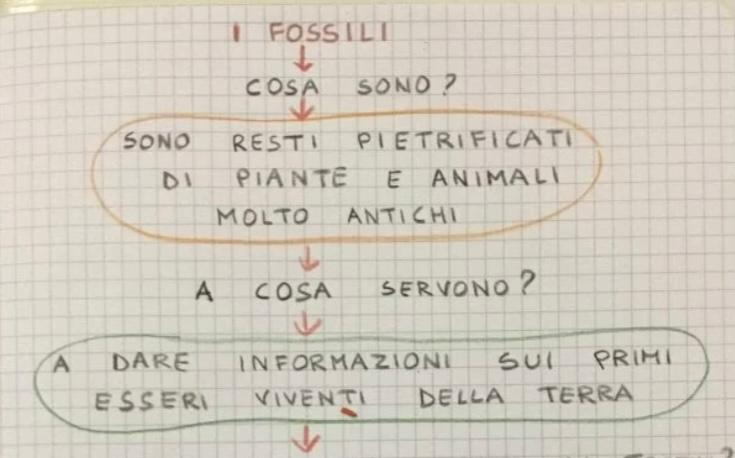 I FOSSILI
COSA SONO?
SONO RESTI PIETRIFICATI
DI PIANTE E ANIMALI
MOLTO ANTICHI
A COSA SERVONO?
A DARE INFORMAZIONI SUI PRIMI
ESSERI VIVENTI DELLA TERRA